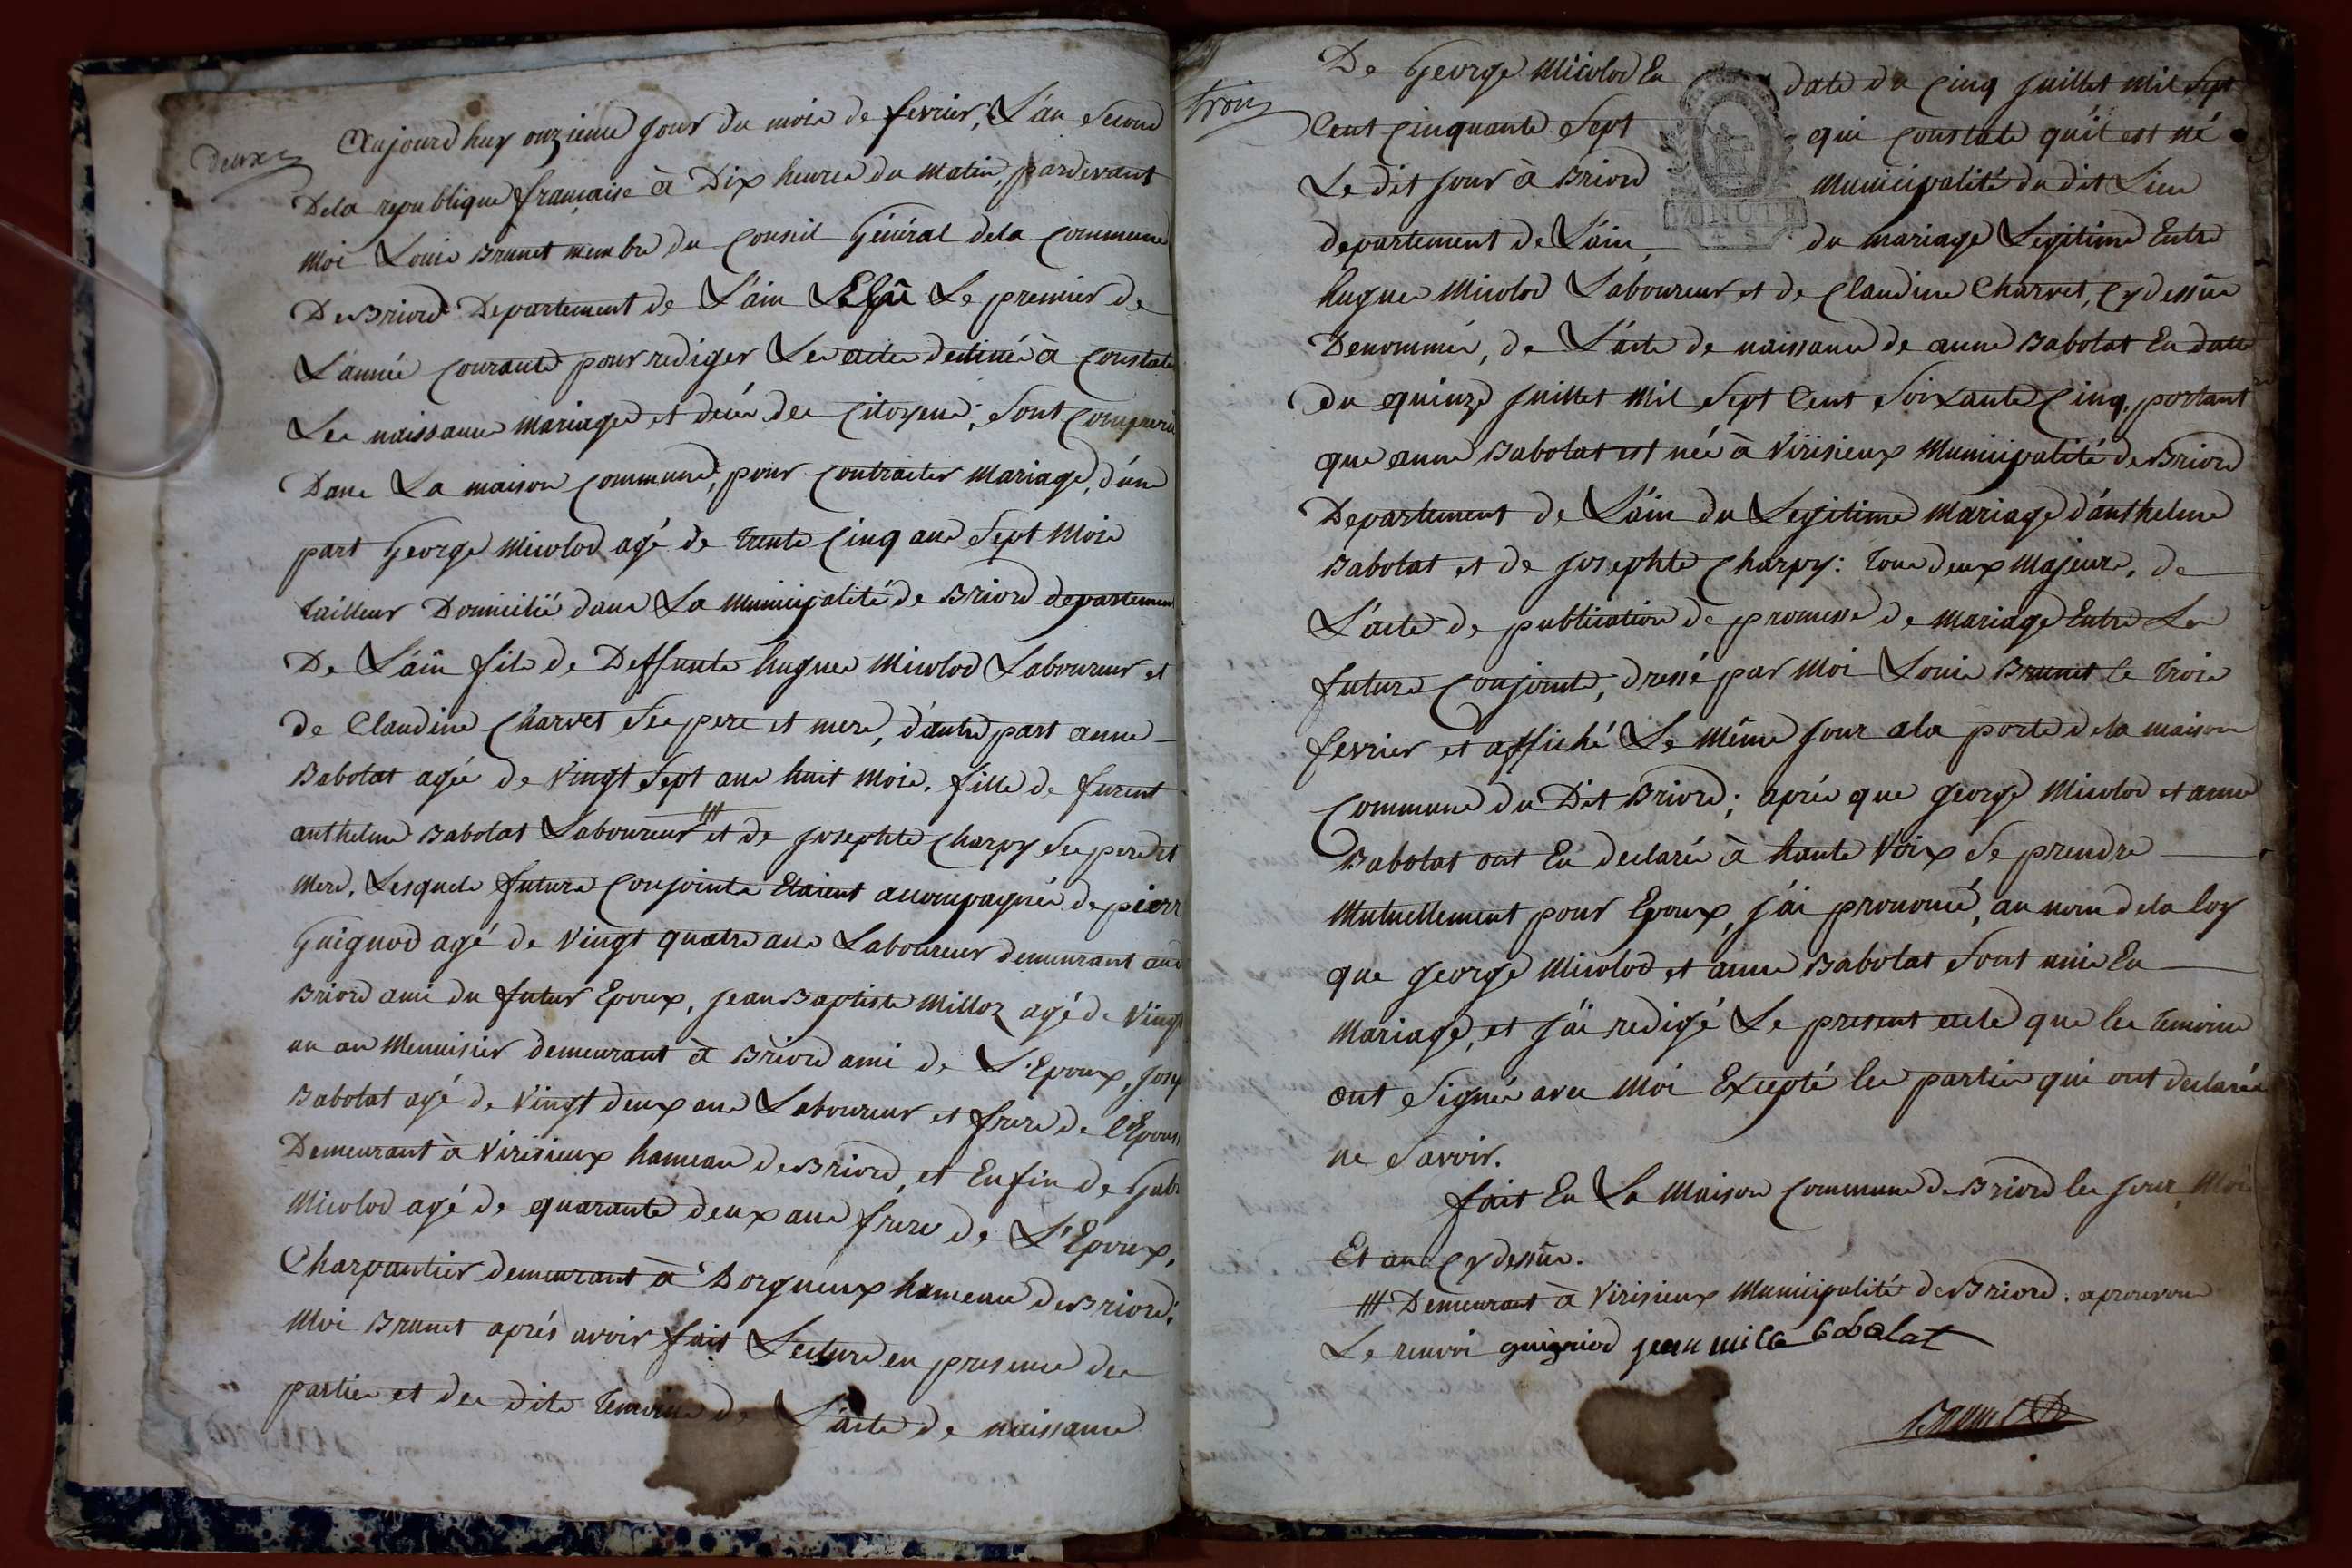 Deux
Aujourd huy onzieme jour du mois de fevrier, L'an Second
Dela republique française à Dix heures du matin, pardevant
Moi Louis Brunet membre du Conseil Général dela Commune
De Briord Departement de L'ain Elû Le premier de
L'année Courante pour rediger Les actes destinés à Constate
Les naissance mariages et decés des Citoyens; Sont
Dans La maison Commune, pour Contracter Mariage, d'une
part George Micolod agé de trente Cinq ans Sept Mois
tailleur Domicilié dans La Municipalité de Briord departemen
De L'ain fils de Deffunts hugues Micolod Laboureur et
de Claudine Charvet Ses pere et mere, d'autre part anne
Babolat agée de Vingt Sept ans huit Mois, fille de furent
anthelme Babolat Laboureur et de Josephte Charpy Ses pere et
Mere, Lesquels futurs Conjoints Etaient acompagnés de pierr
Guignod agé de Vingt quatre ans Laboureur demeurant au d
Briord ami du futur Epoux, Jean Baptiste Milloz agé de Vingt
un an Menuisier demeurant à Briord ami de L'Epoux, Jose
Babolat agé de Vingt deux ans Laboureur et frere de l'Epous
Demeurant à Virisieux hameau de Briord, et Enfin de Gab
Micolod agé de quarante deux ans frere de L'Epoux,
Charpantier demeurant à Dorgneux hameau de Briord;
Moi Brunet aprés avoir fait Lecture en presence des
parties et des dits temoins de L'acte de naissance
trois
De George Micolod En date du Cinq Juillet Mil Sept
Cent Cinquante Sept qui Constate qu'il est né
Le dit jour à Briord Municipalité du dit Lieu
MINUTE
departement de L'ain, du mariage Legitime Entre
hugues Micolod Laboureur et de Claudine Charvet, Cy dessûs
Denommés, de L'acte de naissance de anne Babolat En datte
du quinze juillet Mil Sept Cent Soixante Cinq, portant
que anne Babolat est née à Virisieux Municipalité de Briord
Departement de L'ain du Legitime Mariage d'anthelme
Babolat et de Josephte Charpy: tous deux Majeurs, de
L'acte de publication de promesse de Mariage Entre Les
futurs Conjoints, dressé par Moi Louis Brunet le trois
fevrier et affiché Le même jour ala porte dela maison
Commune du Dit Briord; aprés que george Micolod et anne
Babolat ont Eu declarés à haute Voix Se prendre
Mutuellement pour Epoux, j'ai prononcé, au nom dela loy
que george Micolod et anne Babolat Sont unis En
Mariage, et j'ai redigé Le present acte que les temoins
ont Signés avec Moi Excepté les parties qui ont declarés
ne Savoir.
fait En La Maison Commune de Briord les jour, Mois
Et an Cy dessûs.
Demeurant à Virisieux Municipalité de Briord. aprouvons
Le renvoi guigniod jean mille babolat
Brunet